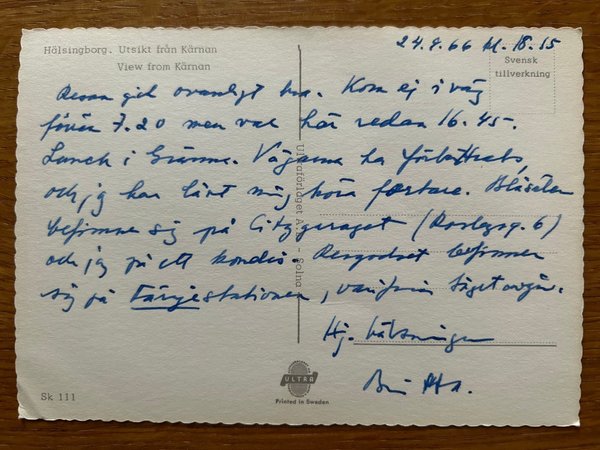 Hälsingborg. Utsikt från Kärnan
View from Kärnan
24.9.66 kl. 18.15
Svensk
tillverkning
Resan gick ovanligt bra. Kom ej i väg
förrän 7.20 men var här redan 16.45.
Lunch i Gränna. Vägarna ha förbättrats
och jag har lärt mig köra fortare. Blåselen
befinner sig på Citygaraget (Roslagsg. 6)
och jag på ett kondis. Resgodset befinner
sig på Färjestationen, varifrån tåget avgår.
Hj. hälsningar
Britta.
Ultraförlaget A.B. - Solna
ULTRA
Printed in Sweden
Sk 111